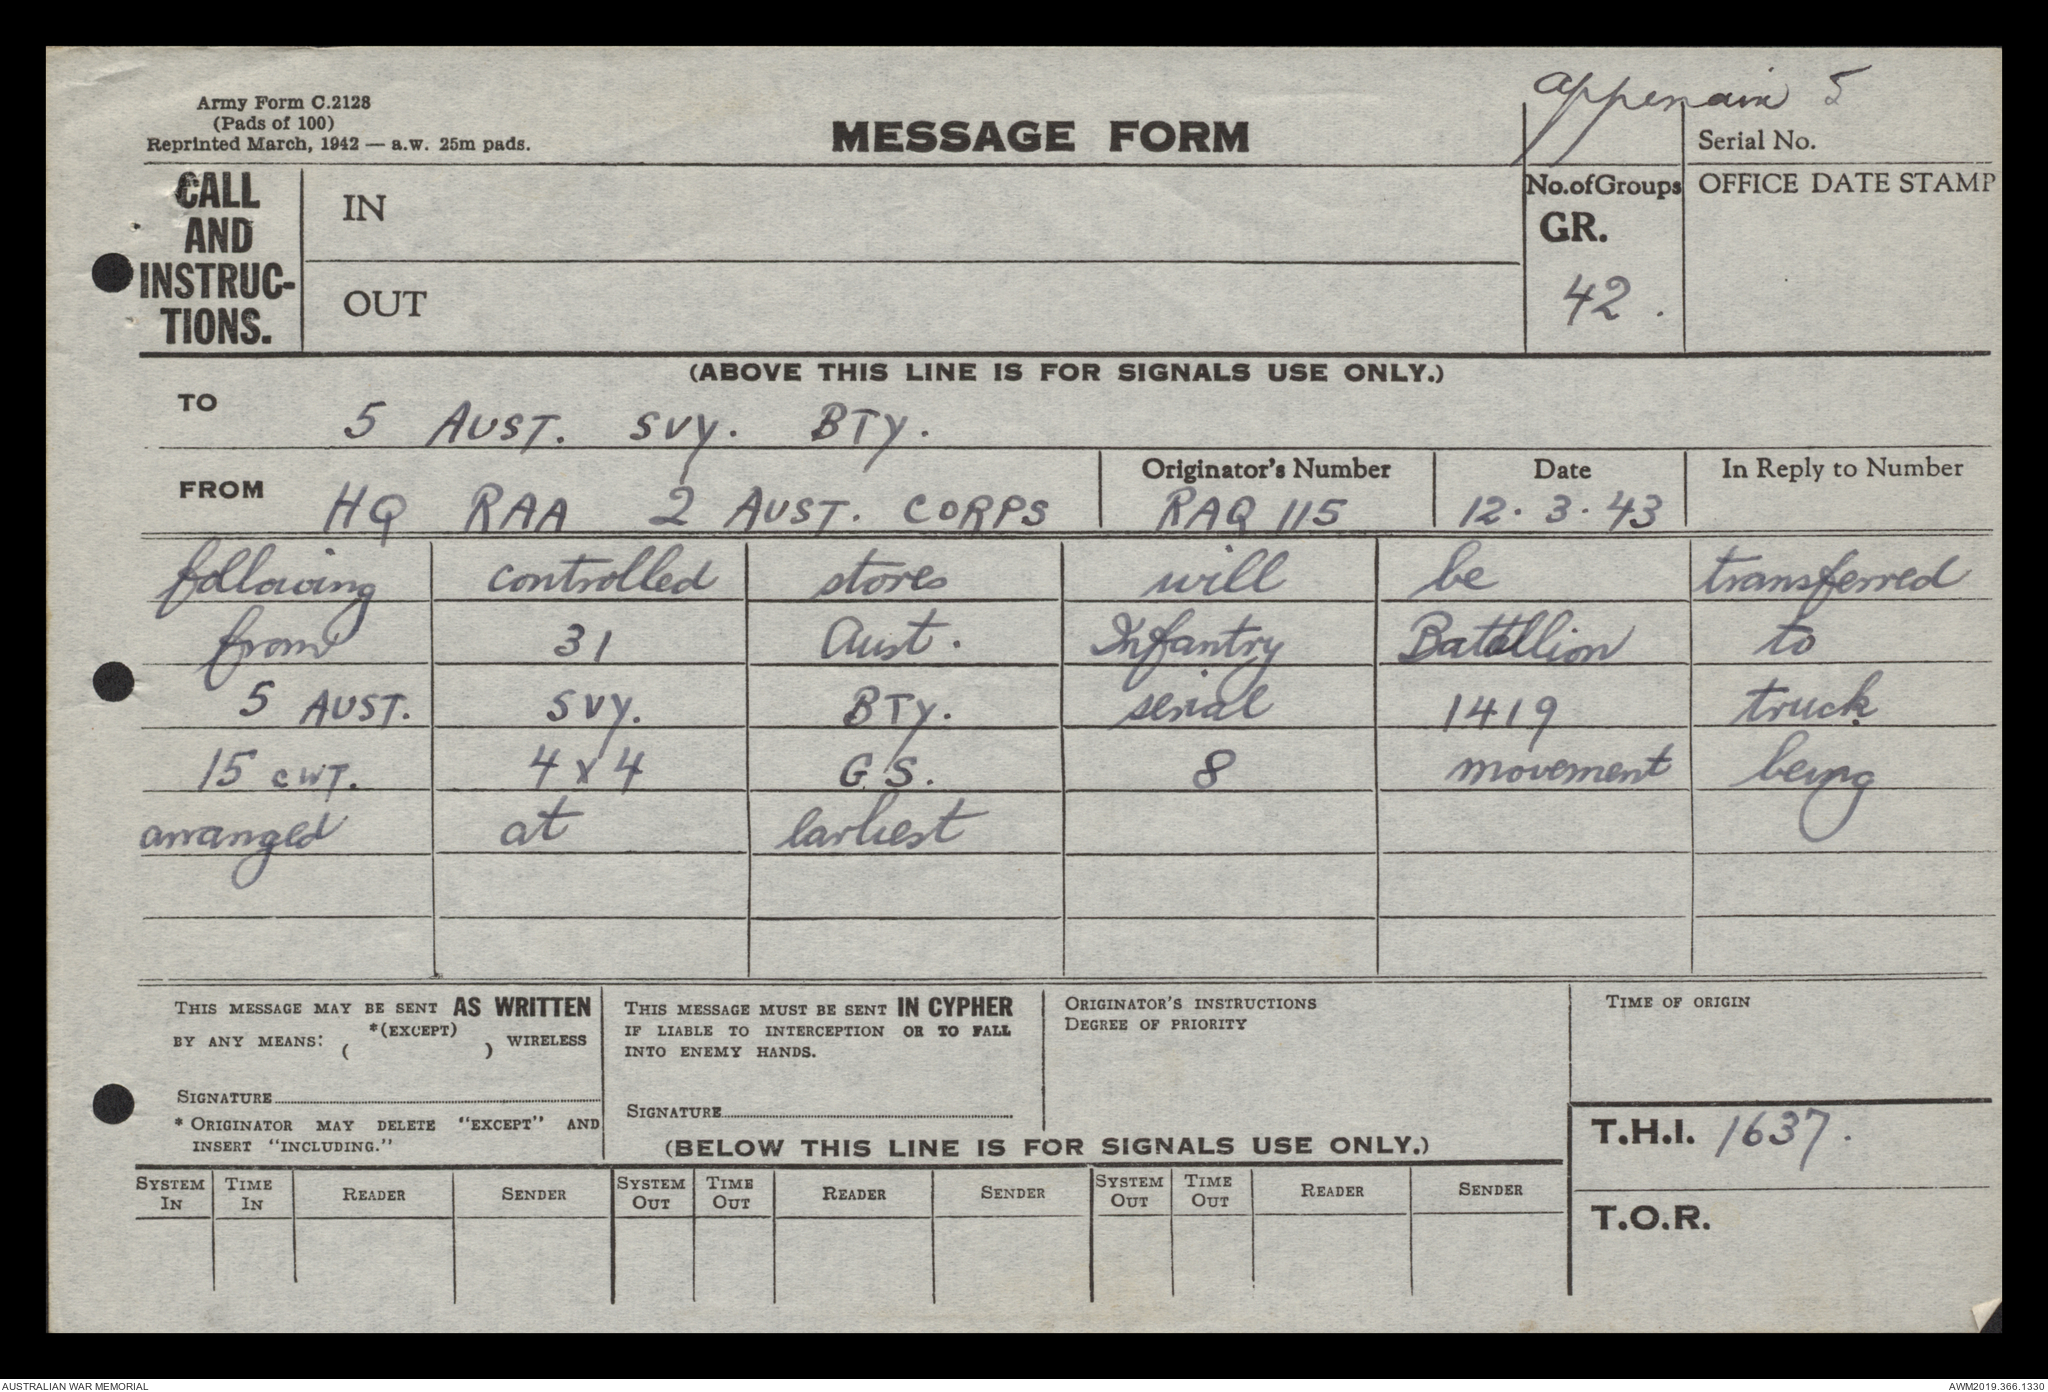 Appendix 5
Army Form C.2128
(Pads of 100)
Reprinted March, 1942 — a.w. 25m pads.
MESSAGE FORM
Serial No.
CALL
AND
INSTRUC-
TIONS.
IN
OUT
No.ofGroups
GR.
42.
OFFICE DATE STAMP
(ABOVE THIS LINE IS FOR SIGNALS USE ONLY.)
TO 5 AUST. SVY. BTY.
FROM HQ RAA 2 AUST. CORPS
Originator's Number
RAQ 115
Date
12.3.43
In Reply to Number
following controlled stores will be transferred
from 31 Aust. Infantry Batallion to
5 AUST. SVY. BTY. serial 1419 truck
15 CWT. 4x4 G.S. 8 movement being
arranged at earliest
THIS MESSAGE MAY BE SENT AS WRITTEN
BY ANY MEANS: *(EXCEPT) ( ) WIRELESS
SIGNATURE
* ORIGINATOR MAY DELETE "EXCEPT" AND
INSERT "INCLUDING."
THIS MESSAGE MUST BE SENT IN CYPHER
IF LIABLE TO INTERCEPTION OR TO FALL
INTO ENEMY HANDS.
SIGNATURE
ORIGINATOR'S INSTRUCTIONS
DEGREE OF PRIORITY
TIME OF ORIGIN
T.H.I. 1637.
T.O.R.
(BELOW THIS LINE IS FOR SIGNALS USE ONLY.)
SYSTEM IN TIME IN READER SENDER SYSTEM OUT TIME OUT READER SENDER SYSTEM OUT TIME OUT READER SENDER
AUSTRALIAN WAR MEMORIAL
AWM2019.366.1330